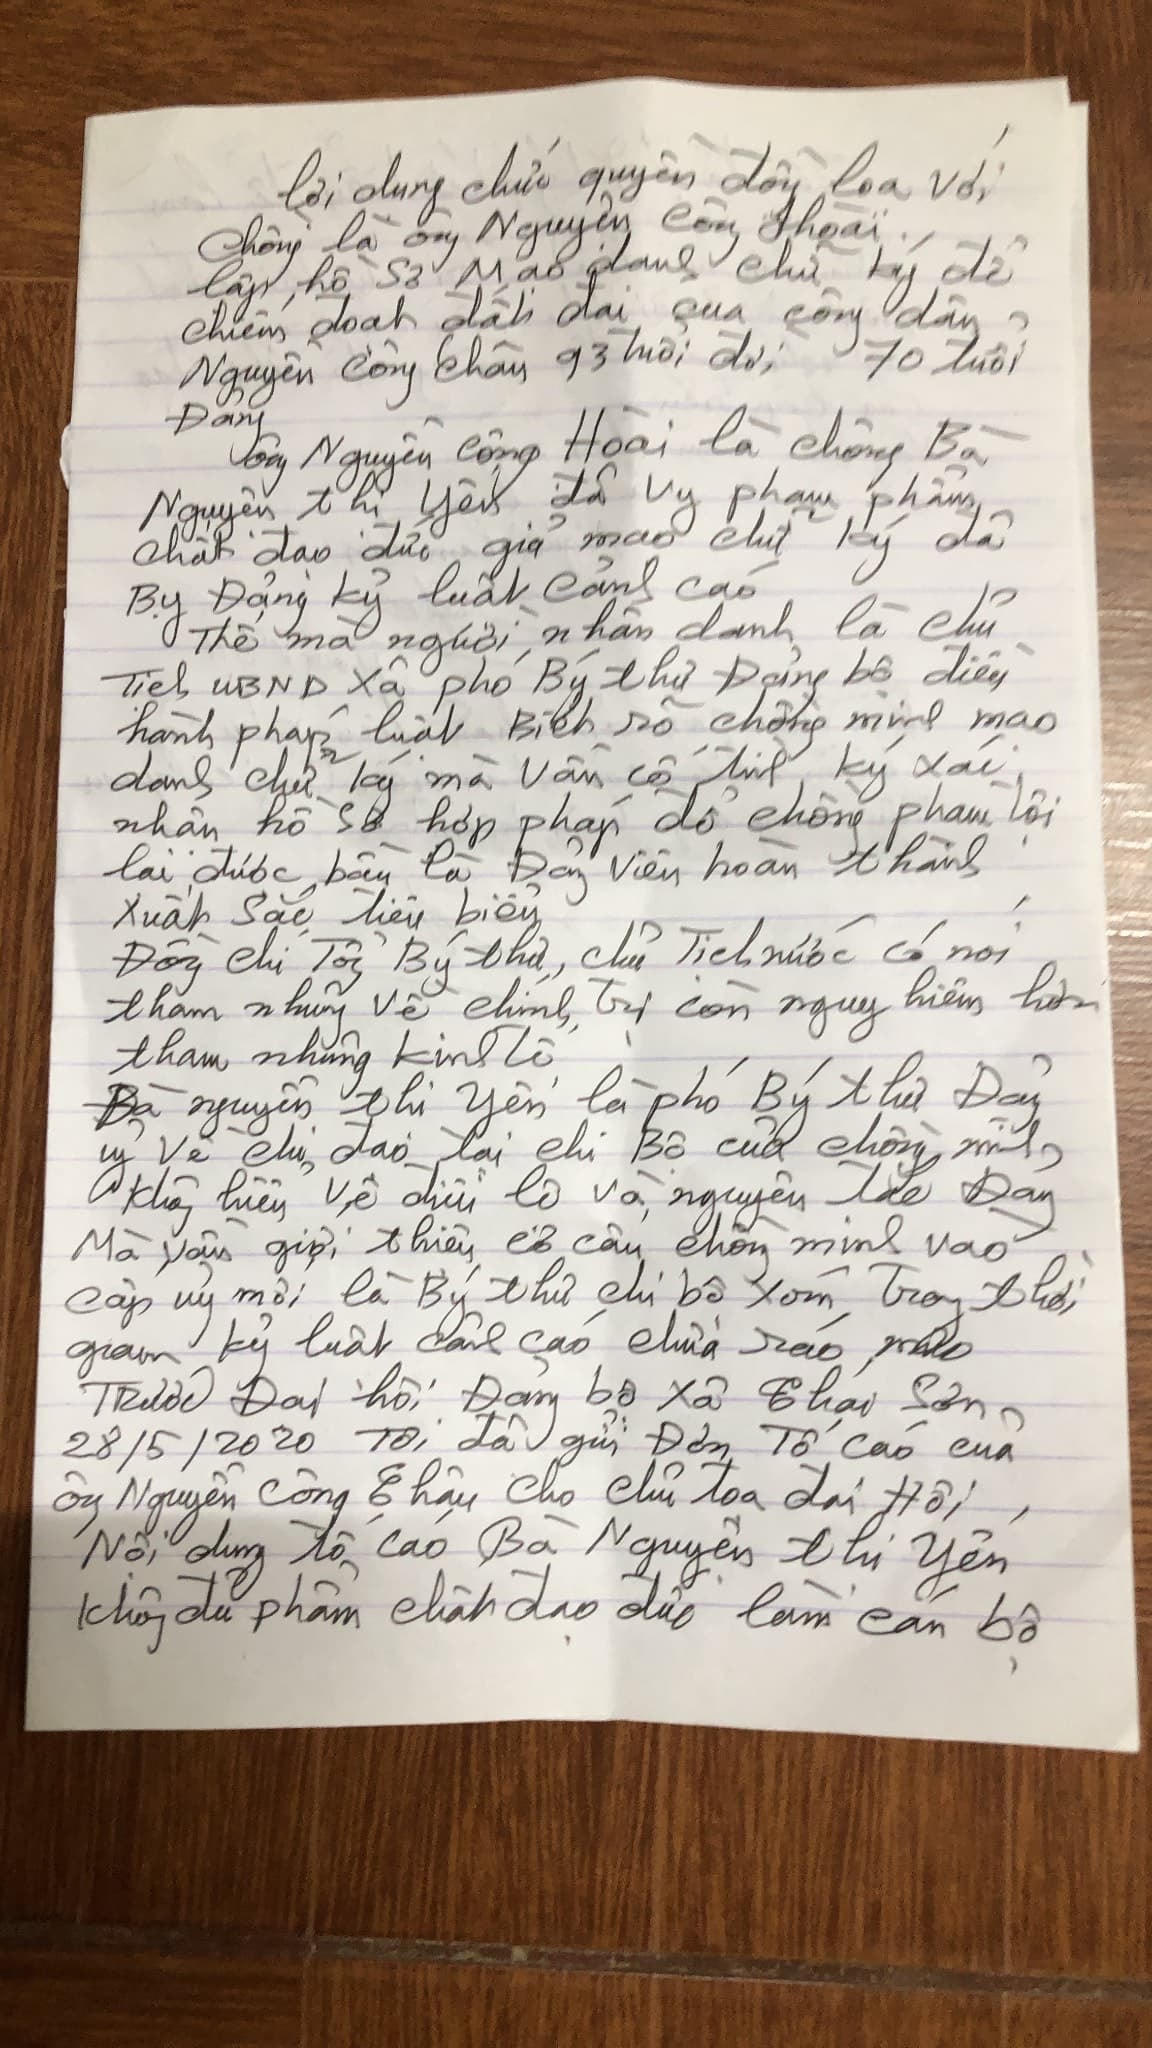 lợi dụng chức quyền đồng loã với
chồng là ông Nguyễn Công Hoài.
lập hồ sơ Mạo danh chữ ký để
chiếm đoạt đất đai của công dân
Nguyễn Công Chân 93 tuổi đời 70 tuổi
Đảng
ông Nguyễn Công Hoài là chồng Bà
Nguyễn thị Yến đã vy phạm phẩm
chất đạo đức giả mạo chữ ký đã
Bỵ Đảng kỷ luật cảnh cáo
Thế mà người nhân danh là chủ
Tịch UBND Xã phó Bý thư Đảng bộ điều
hành pháp luật Biết rõ chồng mình mạo
danh chữ ký mà vẫn cố tình ký xác
nhận hồ sơ hợp pháp để chồng phạm tội
lại được bầu là Đảng viên hoàn thành
xuất sắc tiêu biểu
Đồng chí Tổng Bý thư, chủ Tịch nước có nói
tham nhũng về chính trị còn nguy hiểm hơn
tham nhũng kinh tế
Bà nguyễn thị Yến là phó Bý thư Đảng
uỷ về chỉ đạo tại chi Bộ của chồng mình
không hiểu về điều lệ và nguyên tắc Đảng
Mà vẫn giới thiệu cơ cấu chồng mình vào
cấp uỷ mới là Bý thư chi bộ xóm Trong thời
gian kỷ luật cảnh cáo chưa ráo mực
Trước Đại hội Đảng bộ xã Thái Sơn
28/5/2020 Tôi đã gửi Đơn Tố cáo của
ông Nguyễn Công Thâu cho chủ toạ đại Hội,
Nội dung tố cáo Bà Nguyễn thị Yến
không đủ phẩm chất đạo đức làm cán bộ